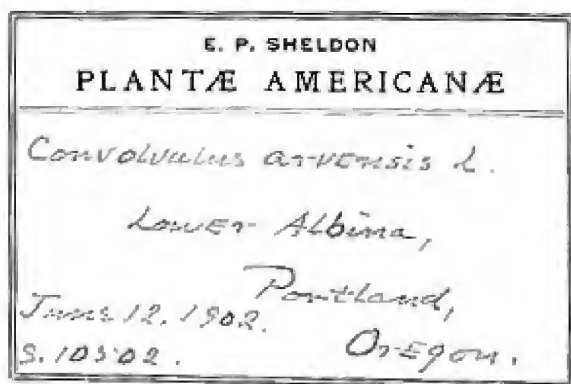 E. P. SHELDON
PLANTÆ AMERICANÆ
Convolvulus arvensis L.
Lower Albina,
Portland,
June 12, 1902.
Oregon.
S. 10502.